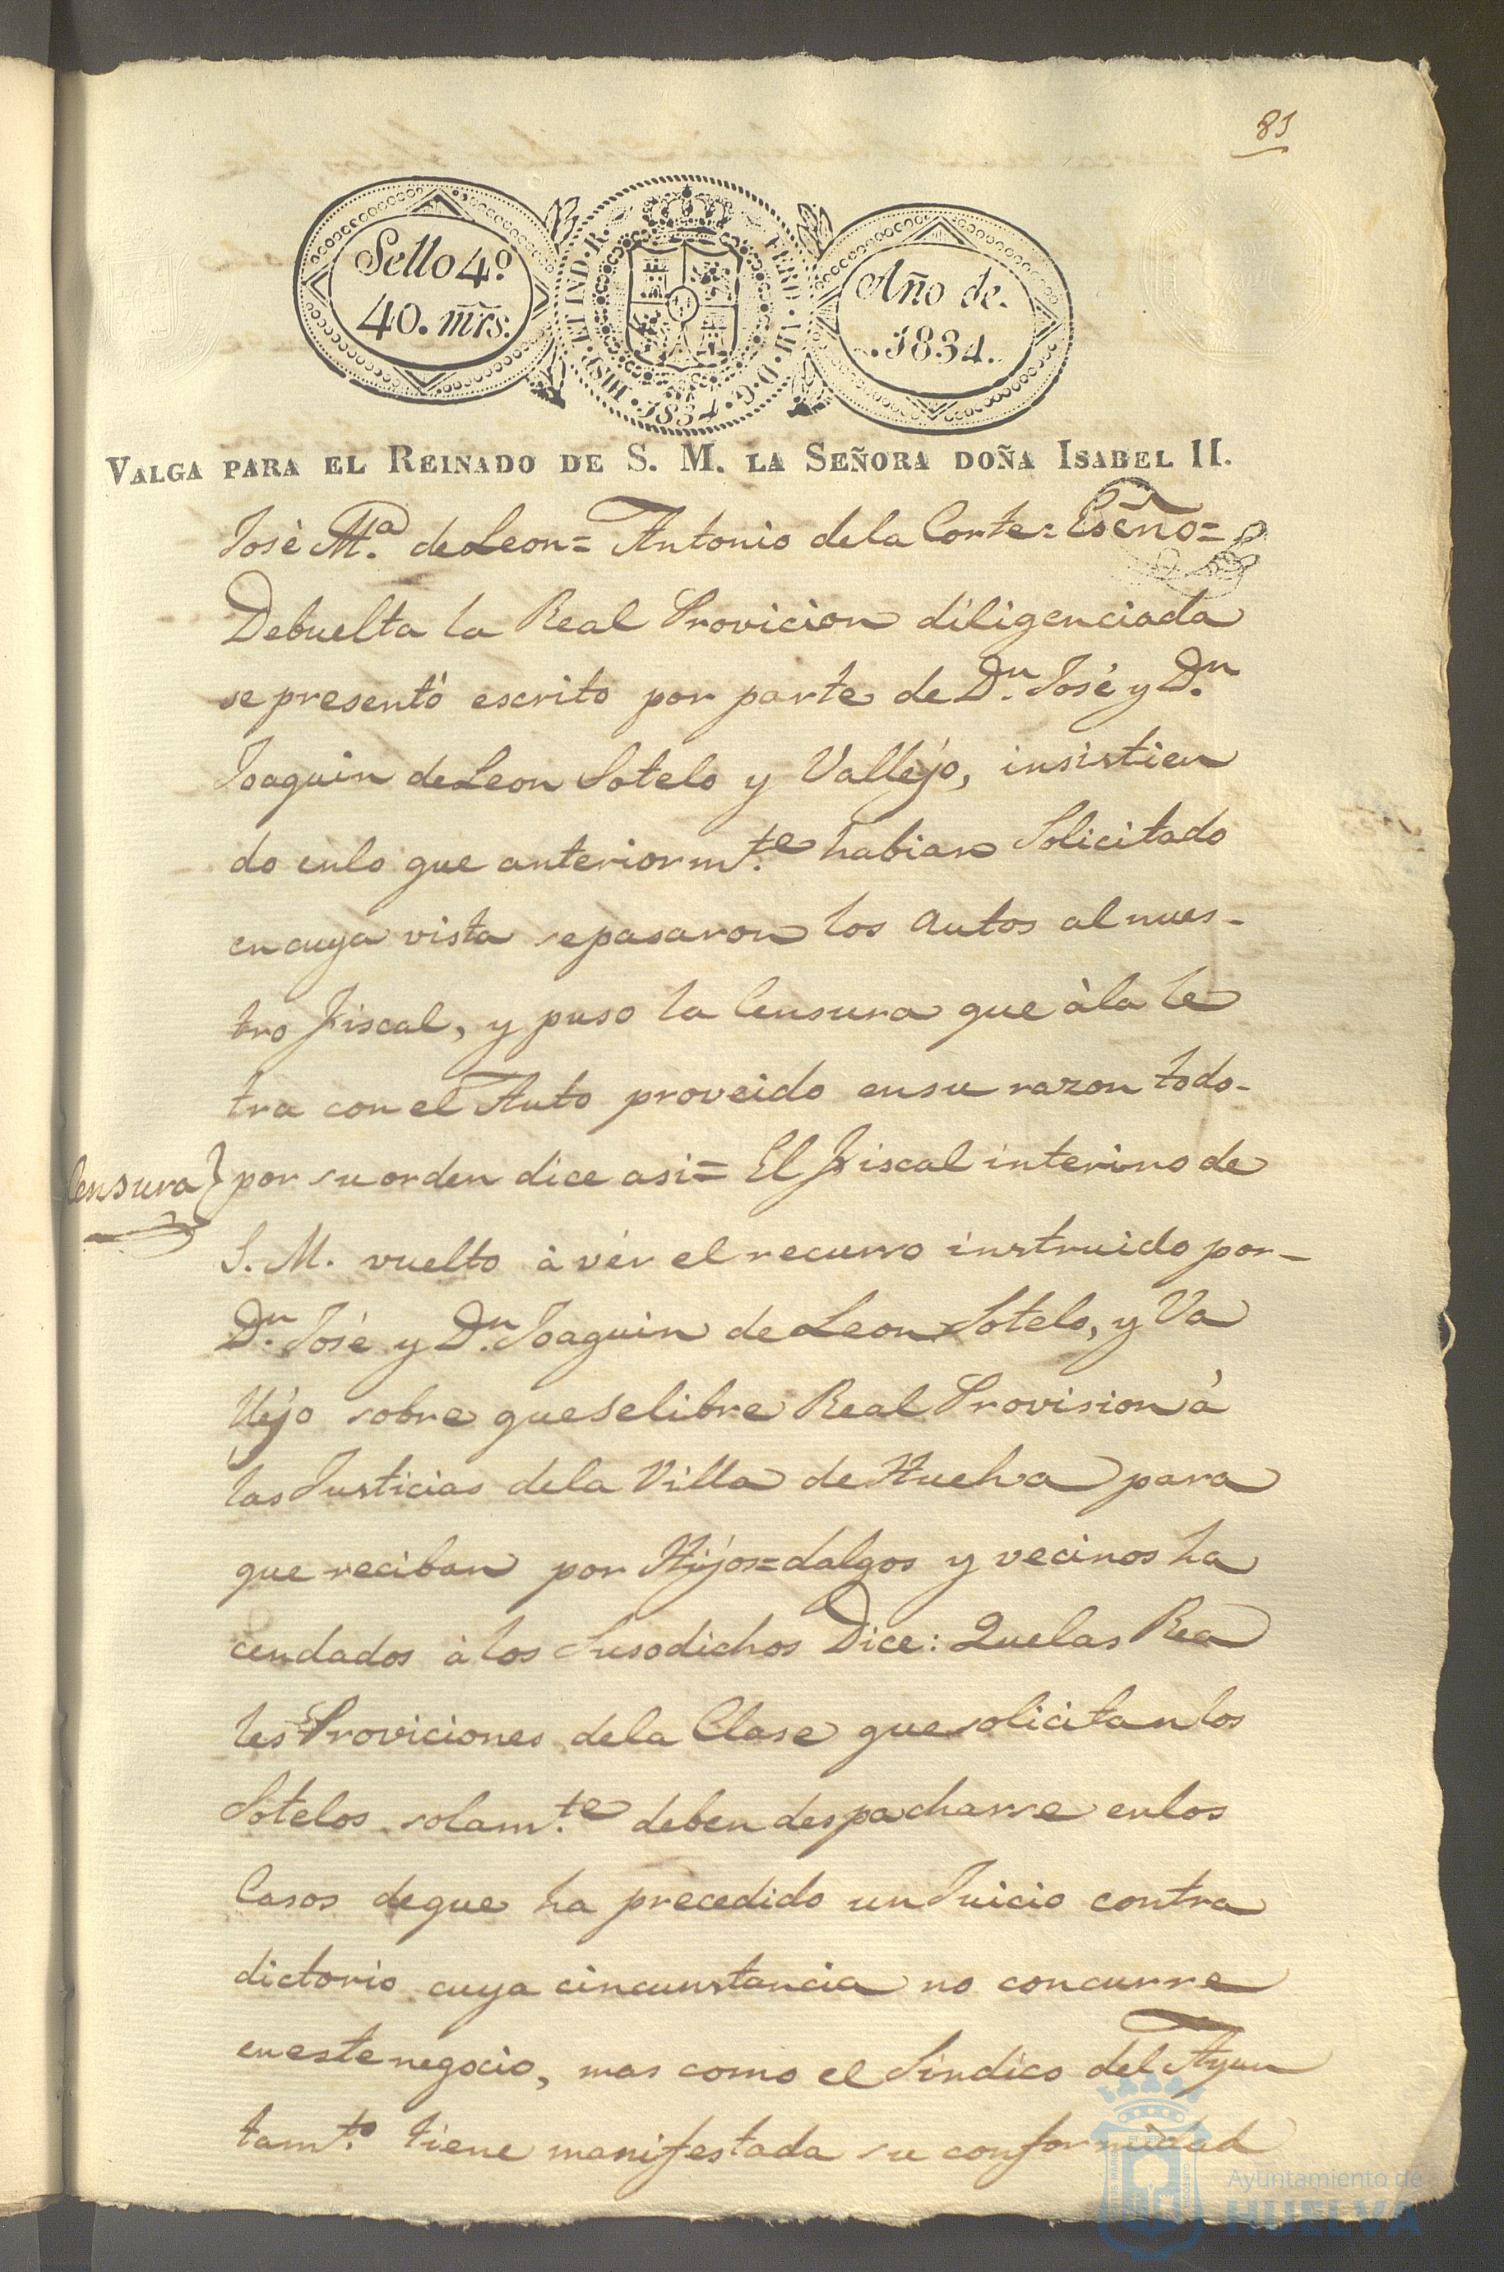 81
Sello 4º
40. mrs.
HISP. ET IND. R.
FERD. VII. D. G.
1834
Año de.
.1834.
VALGA PARA EL REINADO DE S. M. LA SEÑORA DOÑA ISABEL II.
José M.ª de Leon = Antonio de la Corte = Esc̃no =
Debuelta la Real Provicion diligenciada
se presentó escrito por parte de D.n José y D.n
Joaquin de Leon Sotelo y Vallejo, insistien
do en lo que anteriorm.te habian Solicitado
en cuya vista se pasaron los autos al nues-
tro Fiscal, y puso la Censura que à la le
tra con el Auto proveido en su razon todo-
Censura} por su orden dice asi = El Fiscal interino de
S. M. vuelto à vér el recurso instruido por-
D.n José y D.n Joaquin de Leon Sotelo, y Va
llejo sobre que se libre Real Provision à
las Justicias de la Villa de Huelva para
que reciban por Hijos=dalgos y vecinos ha
cendados à los Susodichos Dice: Que las Rea
les Proviciones de la Clase que solicitan los
Sotelos solam.te deben despacharse en los
Casos de que ha precedido un Juicio contra
dictorio cuya circunstancia no concurre
en este negocio, mas como el Sindico del Ayun
tam.to tiene manifestada su conformidad
Ayuntamiento de
HUELVA